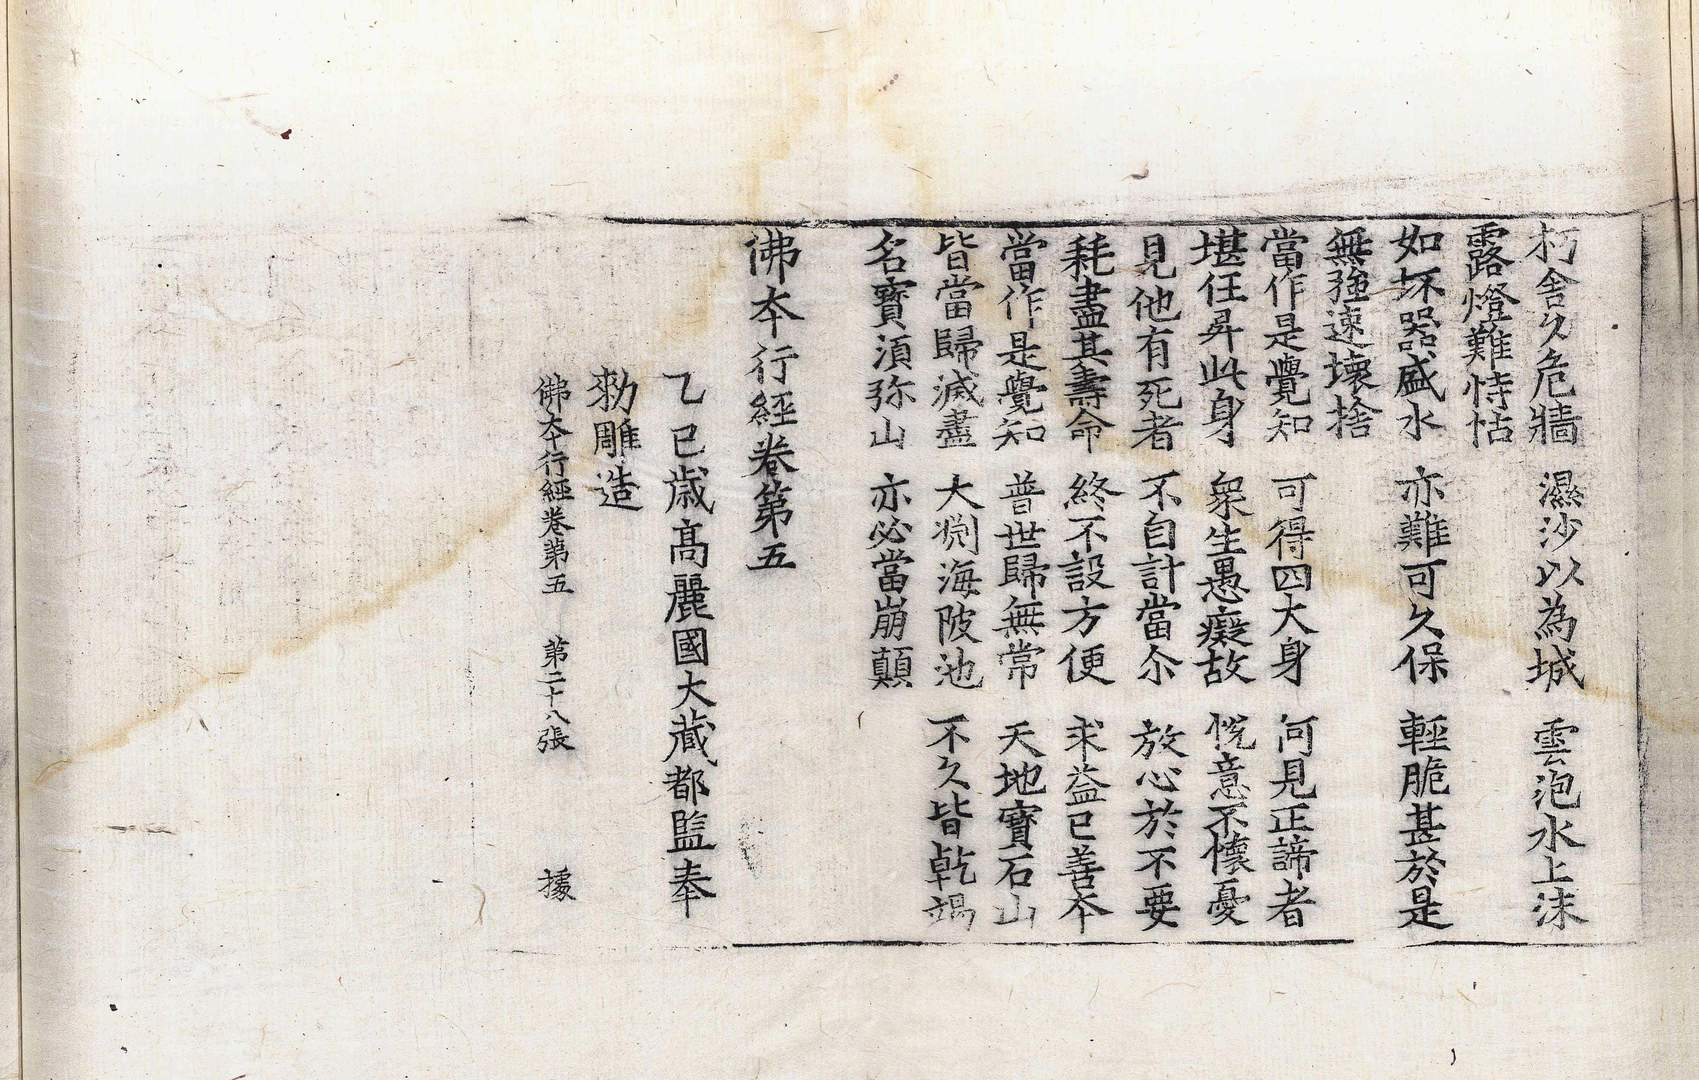 朽舍久危牆　濕沙以為城　雲泡水上沫
露燈難恃怙
如坏器盛水　亦難可久保　輕脆甚於是
無強速壞捨
當作是覺知　可得四大身　何見正諦者
堪任昇此身　衆生愚癡故　悅意不懷憂
見他有死者　不自計當尒　放心於不要
耗盡其壽命　終不設方便　求益已善夲
當作是覺知　普世歸無常　天地寶石山
皆當歸滅盡　大渕海陂池　不久皆乹竭
名寶湏弥山　亦必當崩顛
佛夲行經卷第五
乙巳歳髙麗國大藏都監奉
勑雕造
佛夲行經卷第五　第二十八張　據